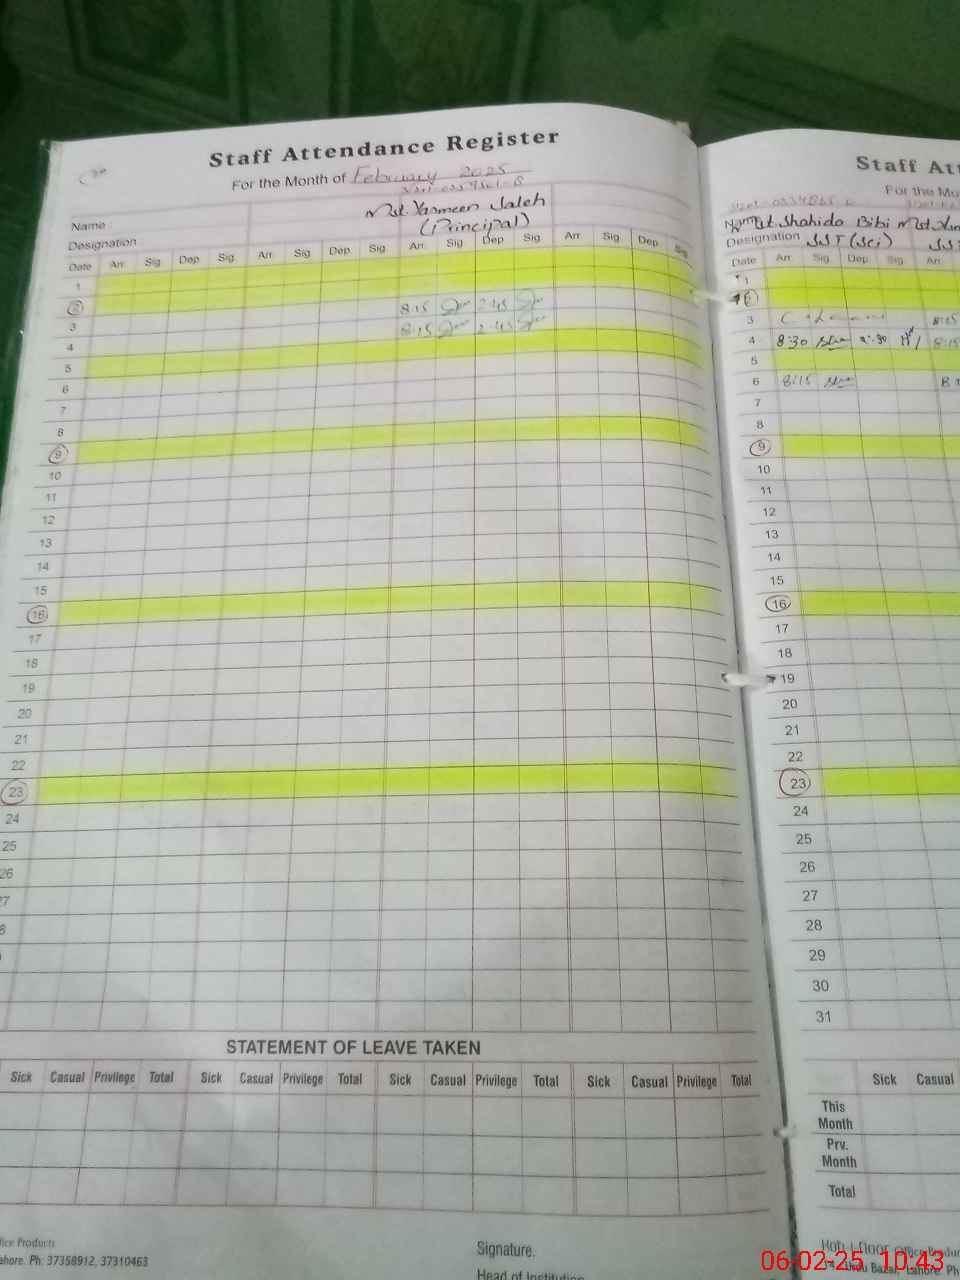 Staff Attendance Register
For the Month of February 2025
Name Mst. Yasmeen Saleh
Designation (Principal)
Date Arr. Sig. Dep. Sig. Arr. Sig. Dep. Sig. Arr. Sig. Dep. Sig. Arr. Sig. Dep. Sig.
1
2
3 8:15 2:45
4 8:15 2:45
5
6
7
8
9
10
11
12
13
14
15
16
17
18
19
20
21
22
23
24
25
26
STATEMENT OF LEAVE TAKEN
Sick Casual Privilege Total Sick Casual Privilege Total Sick Casual Privilege Total Sick Casual Privilege Total
Ph: 37358912, 37310463
Signature.
Head of Institution
Staff
For the
Name Mst. Shahida Bibi
Designation SST (Sci)
Date Arr. Sig. Dep. Sig. Arr.
1
3 8:15
4 8:30 2:30 8:15
5
6 8:15
7
8
9
10
11
12
13
14
15
16
17
18
19
20
21
22
23
24
25
26
27
28
29
30
31
Sick Casual
This Month
Prv. Month
Total
06-02-25 10:43